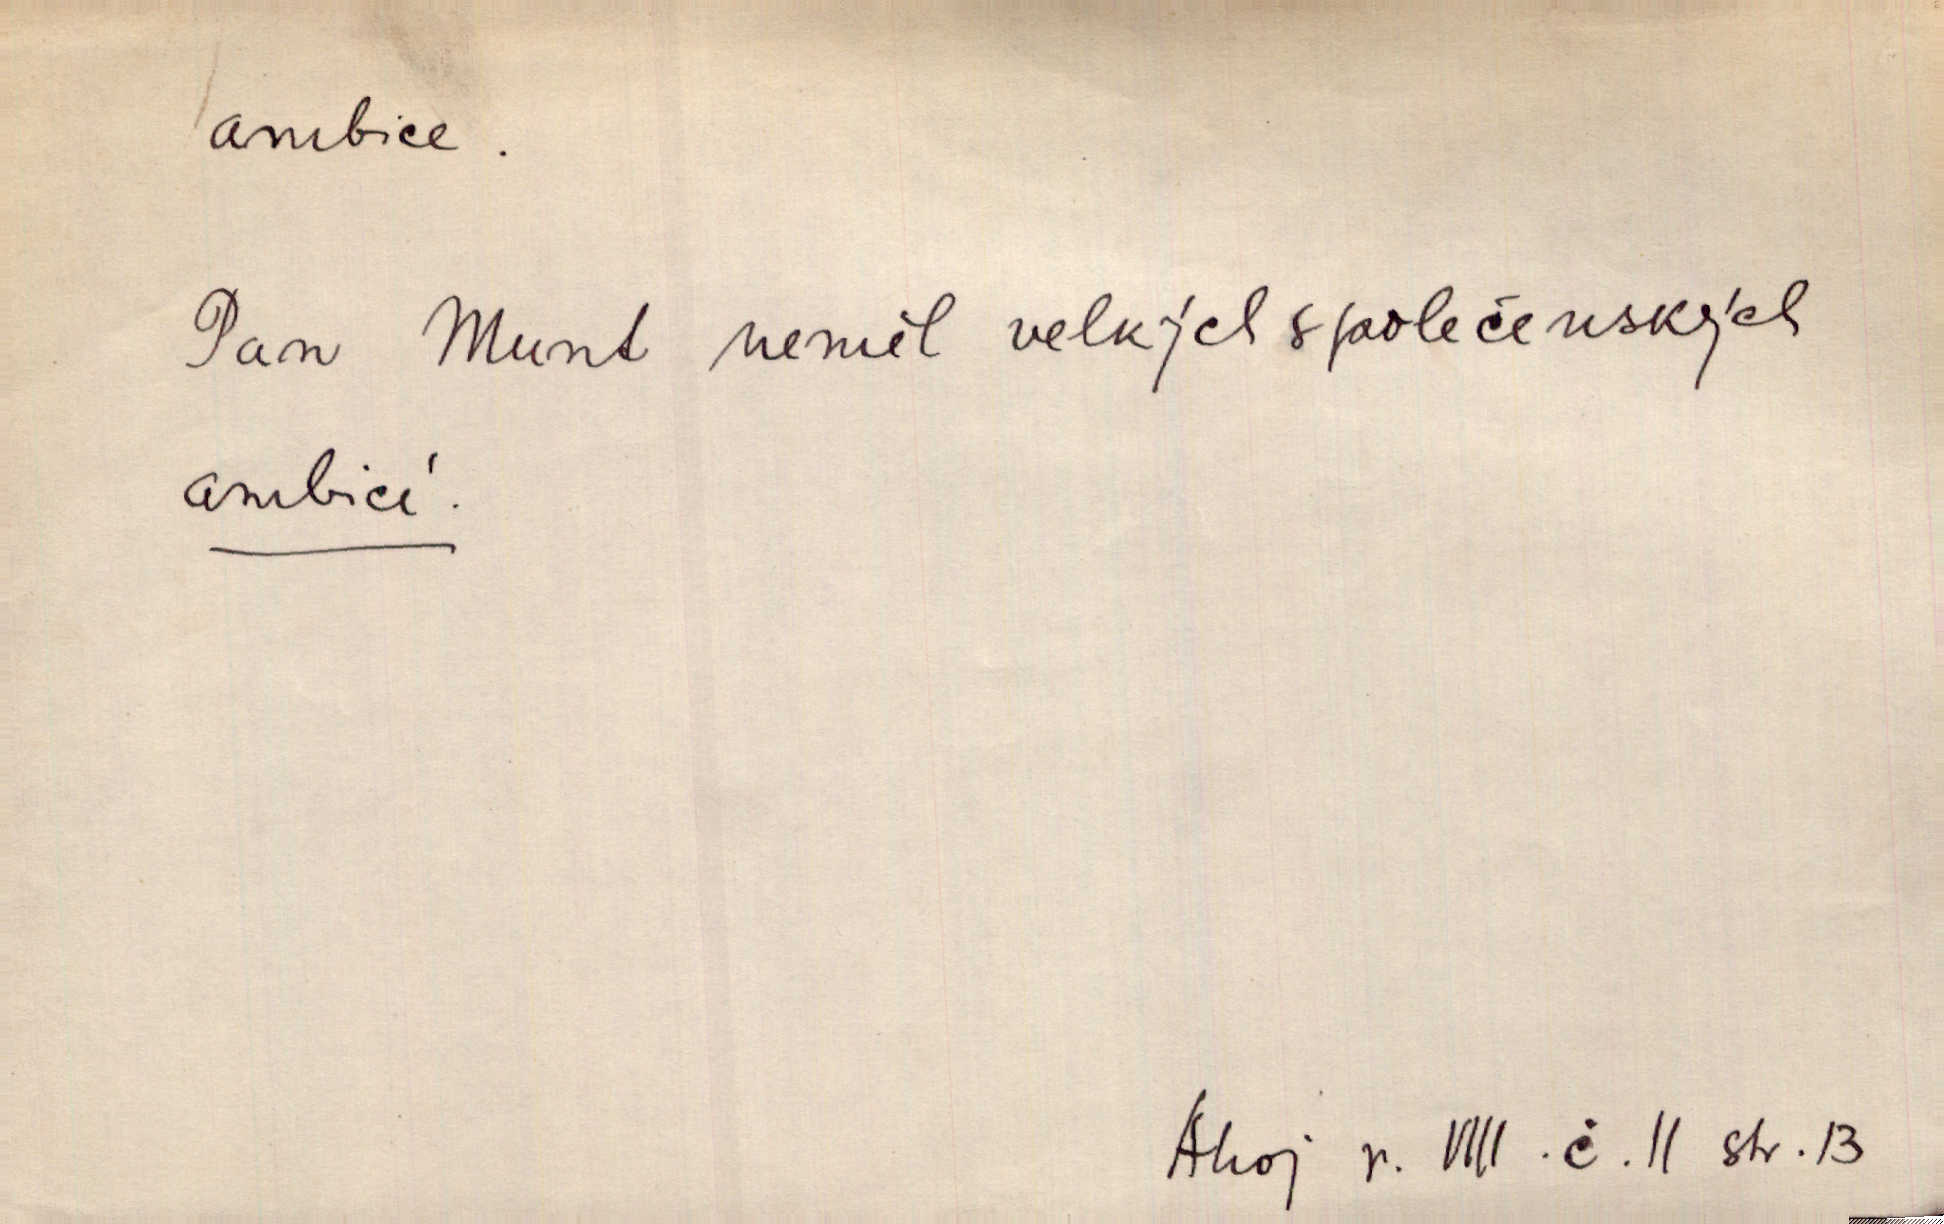 ambice.
Pan Munt neměl velkých společenských
ambicí.
Ahoj r. VIII. č. 11 str. 13